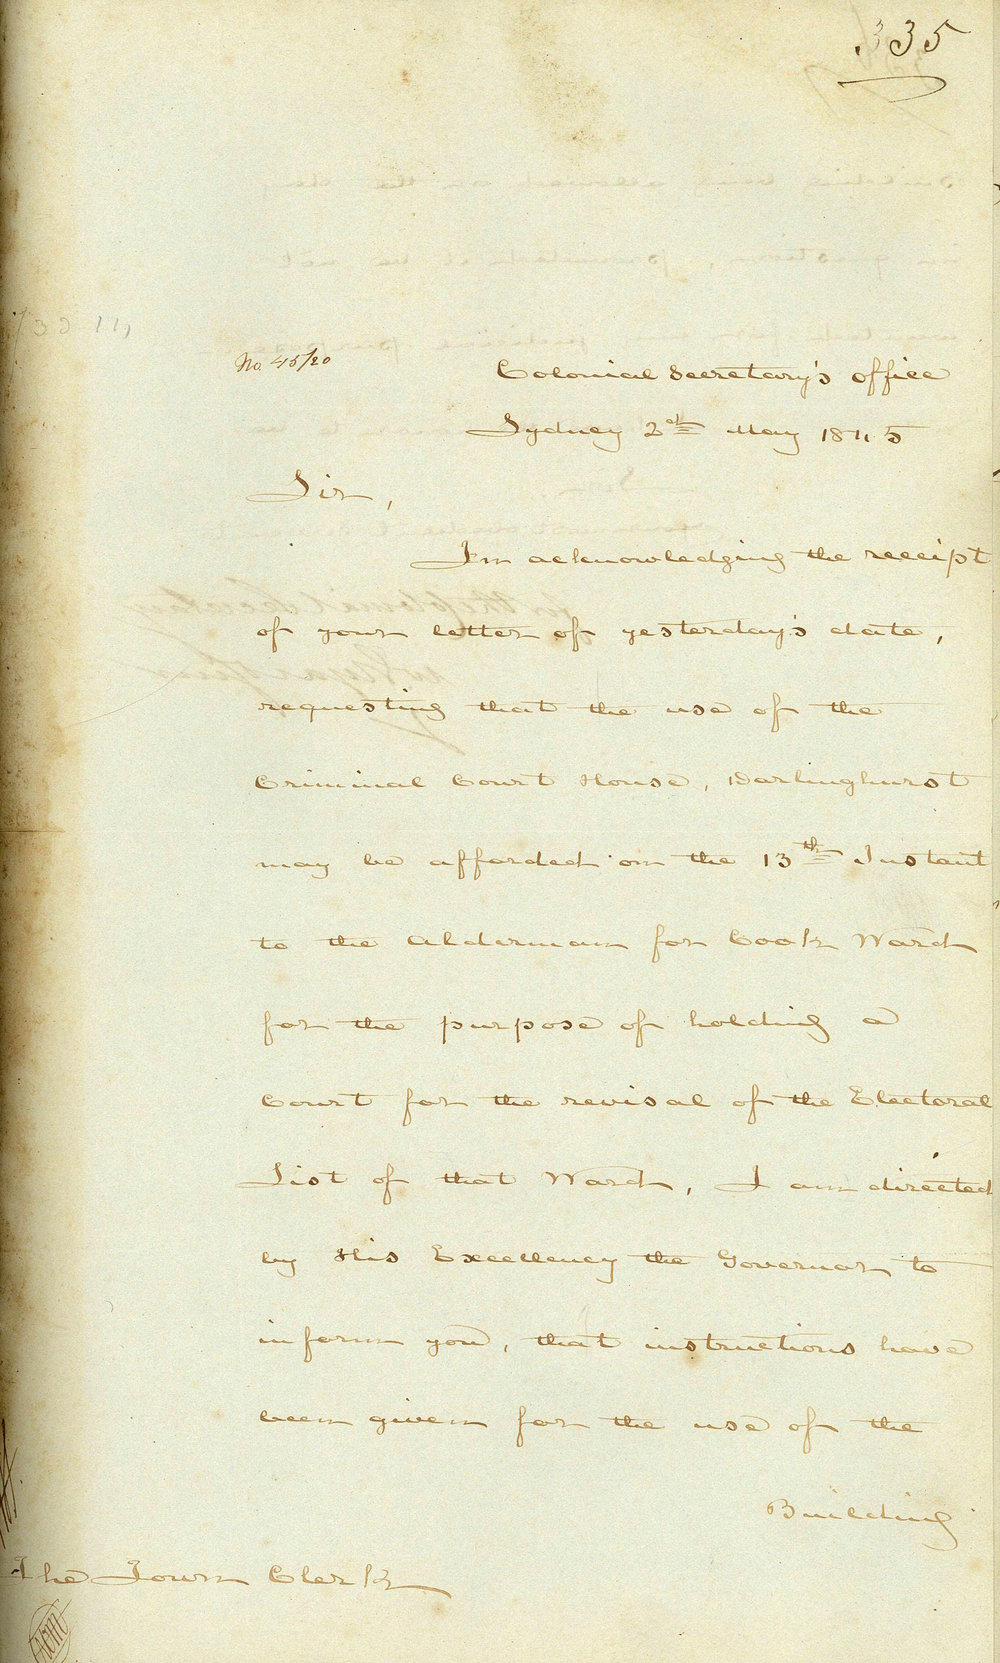 335
No. 45/20
Colonial Secretary's Office
Sydney 2nd May 1845
Sir,
In acknowledging the receipt
of your letter of yesterday's date,
requesting that the use of the
Criminal Court House, Darlinghurst
may be afforded on the 13th Instant
to the Alderman for Cook Ward
for the purpose of holding a
Court for the revisal of the Electoral
List of that Ward, I am directed
by His Excellency the Governor to
inform you, that instructions have
been given for the use of the
Building
The Town Clerk